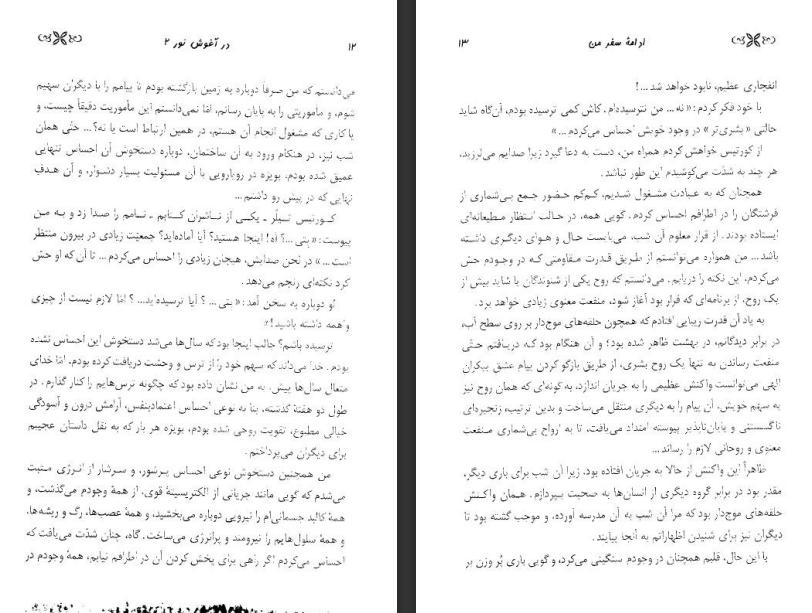 در آغوش نور ۲
۱۲
می‌دانستم که من صرفاً دوباره به زمین بازگشته بودم تا پیامم را با دیگران سهیم
شوم، و مأموریتی را به پایان رسانم، امّا نمی‌دانستم این مأموریت دقیقاً چیست، و
یا کاری که مشغول انجام آن هستم، در همین ارتباط است یا نه؟... حتّی همان
شب نیز، در هنگام ورود به آن ساختمان، دوباره دستخوش آن احساس تنهایی
عمیق شده بودم، بویژه در رویارویی با آن مسئولیت بسیار دشوار، و آن هدفِ
نهایی که در پیش رو داشتم...
کورتیس تیلُر ـ یکی از ناشران کتابم ـ نامم را صدا زد و به من
پیوست: «بتی ...؟ آه! اینجا هستید؟ آیا آماده‌اید؟ جمعیّت زیادی در بیرون منتظر
است...» در لحن صدایش، هیجان زیادی را احساس می‌کردم... تا آن که او حسّ
کرد نکته‌ای رنجم می‌دهد.
او دوباره به سخن آمد: «بتی ... ؟ آیا ترسیده‌اید...؟ امّا لازم نیست از چیزی
واهمه داشته باشید!»
ترسیده باشم؟ جالب اینجا بود که سال‌ها می‌شد دستخوش این احساس نشده
بودم. خدا می‌داند که سهم خود را از ترس و وحشت دریافت کرده بودم. امّا خدای
متعال سال‌ها پیش، به من نشان داده بود که چگونه ترس‌هایم را کنار گذارم. در
طول دو هفتهٔ گذشته، بنا به نوعی احساس اعتمادبنفس، آرامش درون و آسودگی
خیالی مطبوع، تقویت روحی شده بودم، بویژه هر بار که به نقل داستان عجیبم
برای دیگران می‌پرداختم.
من همچنین دستخوش نوعی احساس پرشور، و سرشار از انرژی مثبت
می‌شدم که گویی مانند جریانی از الکتریسیتهٔ قوی، از همهٔ وجودم می‌گذشت، و
همهٔ کالبد جسمانی‌ام را نیرویی دوباره می‌بخشید، و همهٔ عصب‌ها، رگ و ریشه‌ها،
و همهٔ سلول‌هایم را نیرومند و پرانرژی می‌ساخت. گاه، چنان شدّت می‌یافت که
احساس می‌کردم اگر راهی برای پخش کردن آن در اطرافم نیابم، همهٔ وجودم در
ادامهٔ سفر من
۱۳
انفجاری عظیم، نابود خواهد شد...!
با خود فکر کردم: «نه... من نترسیده‌ام. کاش کمی ترسیده بودم، آن‌گاه شاید
حالتی «بشری‌تر» در وجود خویش احساس می‌کردم...»
از کورتیس خواهش کردم همراه من، دست به دعا گیرد زیرا صدایم می‌لرزید،
هر چند به شدّت می‌کوشیدم این طور نباشد.
همچنان که به عبادت مشغول شدیم، کم‌کم حضور جمع بی‌شماری از
فرشتگان را در اطرافم احساس کردم. گویی همه، در حالت انتظار مطیعانه‌ای
ایستاده بودند. از قرار معلوم آن شب، می‌بایست حال و هوای دیگری داشته
باشد... من همواره می‌توانستم از طریق قدرت مقاومتی که در وجودم حسّ
می‌کردم، این نکته را دریابم. می‌دانستم که روح یکی از شنوندگان یا شاید بیش از
یک روح، از برنامه‌ای که قرار بود آغاز شود، منفعت معنوی زیادی خواهد برد.
به یاد آن قدرت زیبایی افتادم که همچون حلقه‌های موج‌دار بر روی سطح آب،
در برابر دیدگانم، در بهشت ظاهر شده بود؛ و آن هنگام بود که دریافتم حتّی
منفعت رساندن به تنها یک روح بشری، از طریق بازگو کردن پیام عشق بیکران
الهی می‌توانست واکنش عظیمی را به جریان اندازد، به گونه‌ای که همان روح نیز
به سهم خویش، آن پیام را به دیگری منتقل می‌ساخت و بدین ترتیب، زنجیره‌ای
ناگسستنی و پایان‌ناپذیر پیوسته امتداد می‌یافت، تا به ارواح بی‌شماری منفعت
معنوی و روحانی لازم را رساند...
ظاهراً این واکنش از حالا به جریان افتاده بود، زیرا آن شب برای باری دیگر،
مقدر بود در برابر گروه دیگری از انسان‌ها به صحبت بپردازم. همان واکنش
حلقه‌های موج‌دار بود که مرا آن شب به آن مدرسه آورده، و موجب گشته بود تا
دیگران نیز برای شنیدن اظهاراتم به آنجا بیایند.
با این حال، قلبم همچنان در وجودم سنگینی می‌کرد، و گویی باری پُر وزن بر